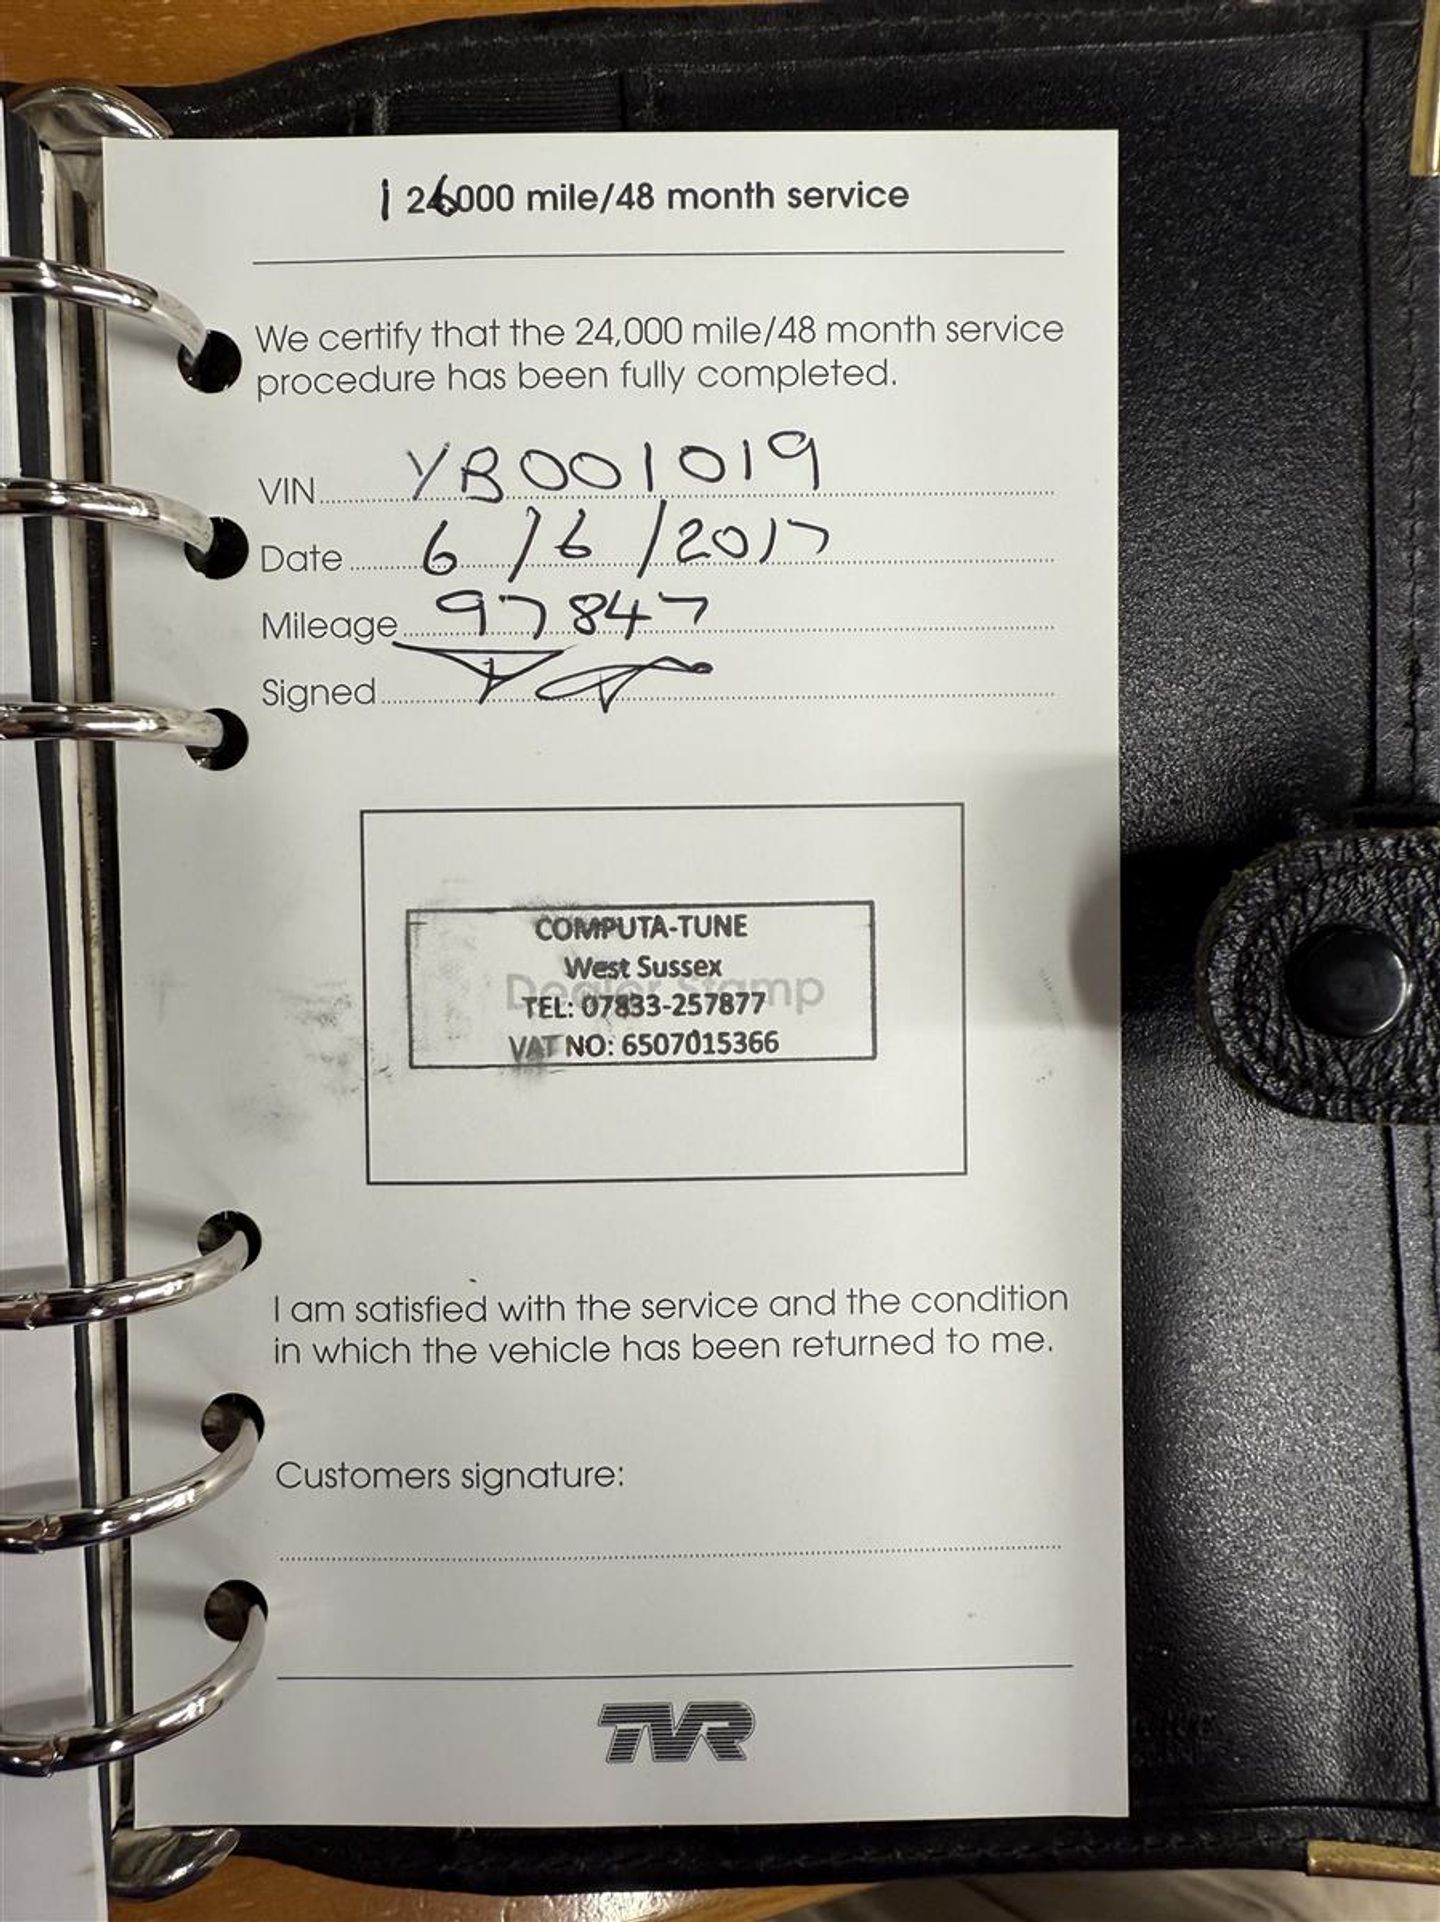 126000 mile/48 month service
We certify that the 24,000 mile/48 month service
procedure has been fully completed.
VIN YB001019
Date 6/6/2017
Mileage 97847
Signed
Dealer Stamp
COMPUTA-TUNE
West Sussex
TEL: 07833-257877
VAT NO: 6507015366
I am satisfied with the service and the condition
in which the vehicle has been returned to me.
Customers signature:
TVR